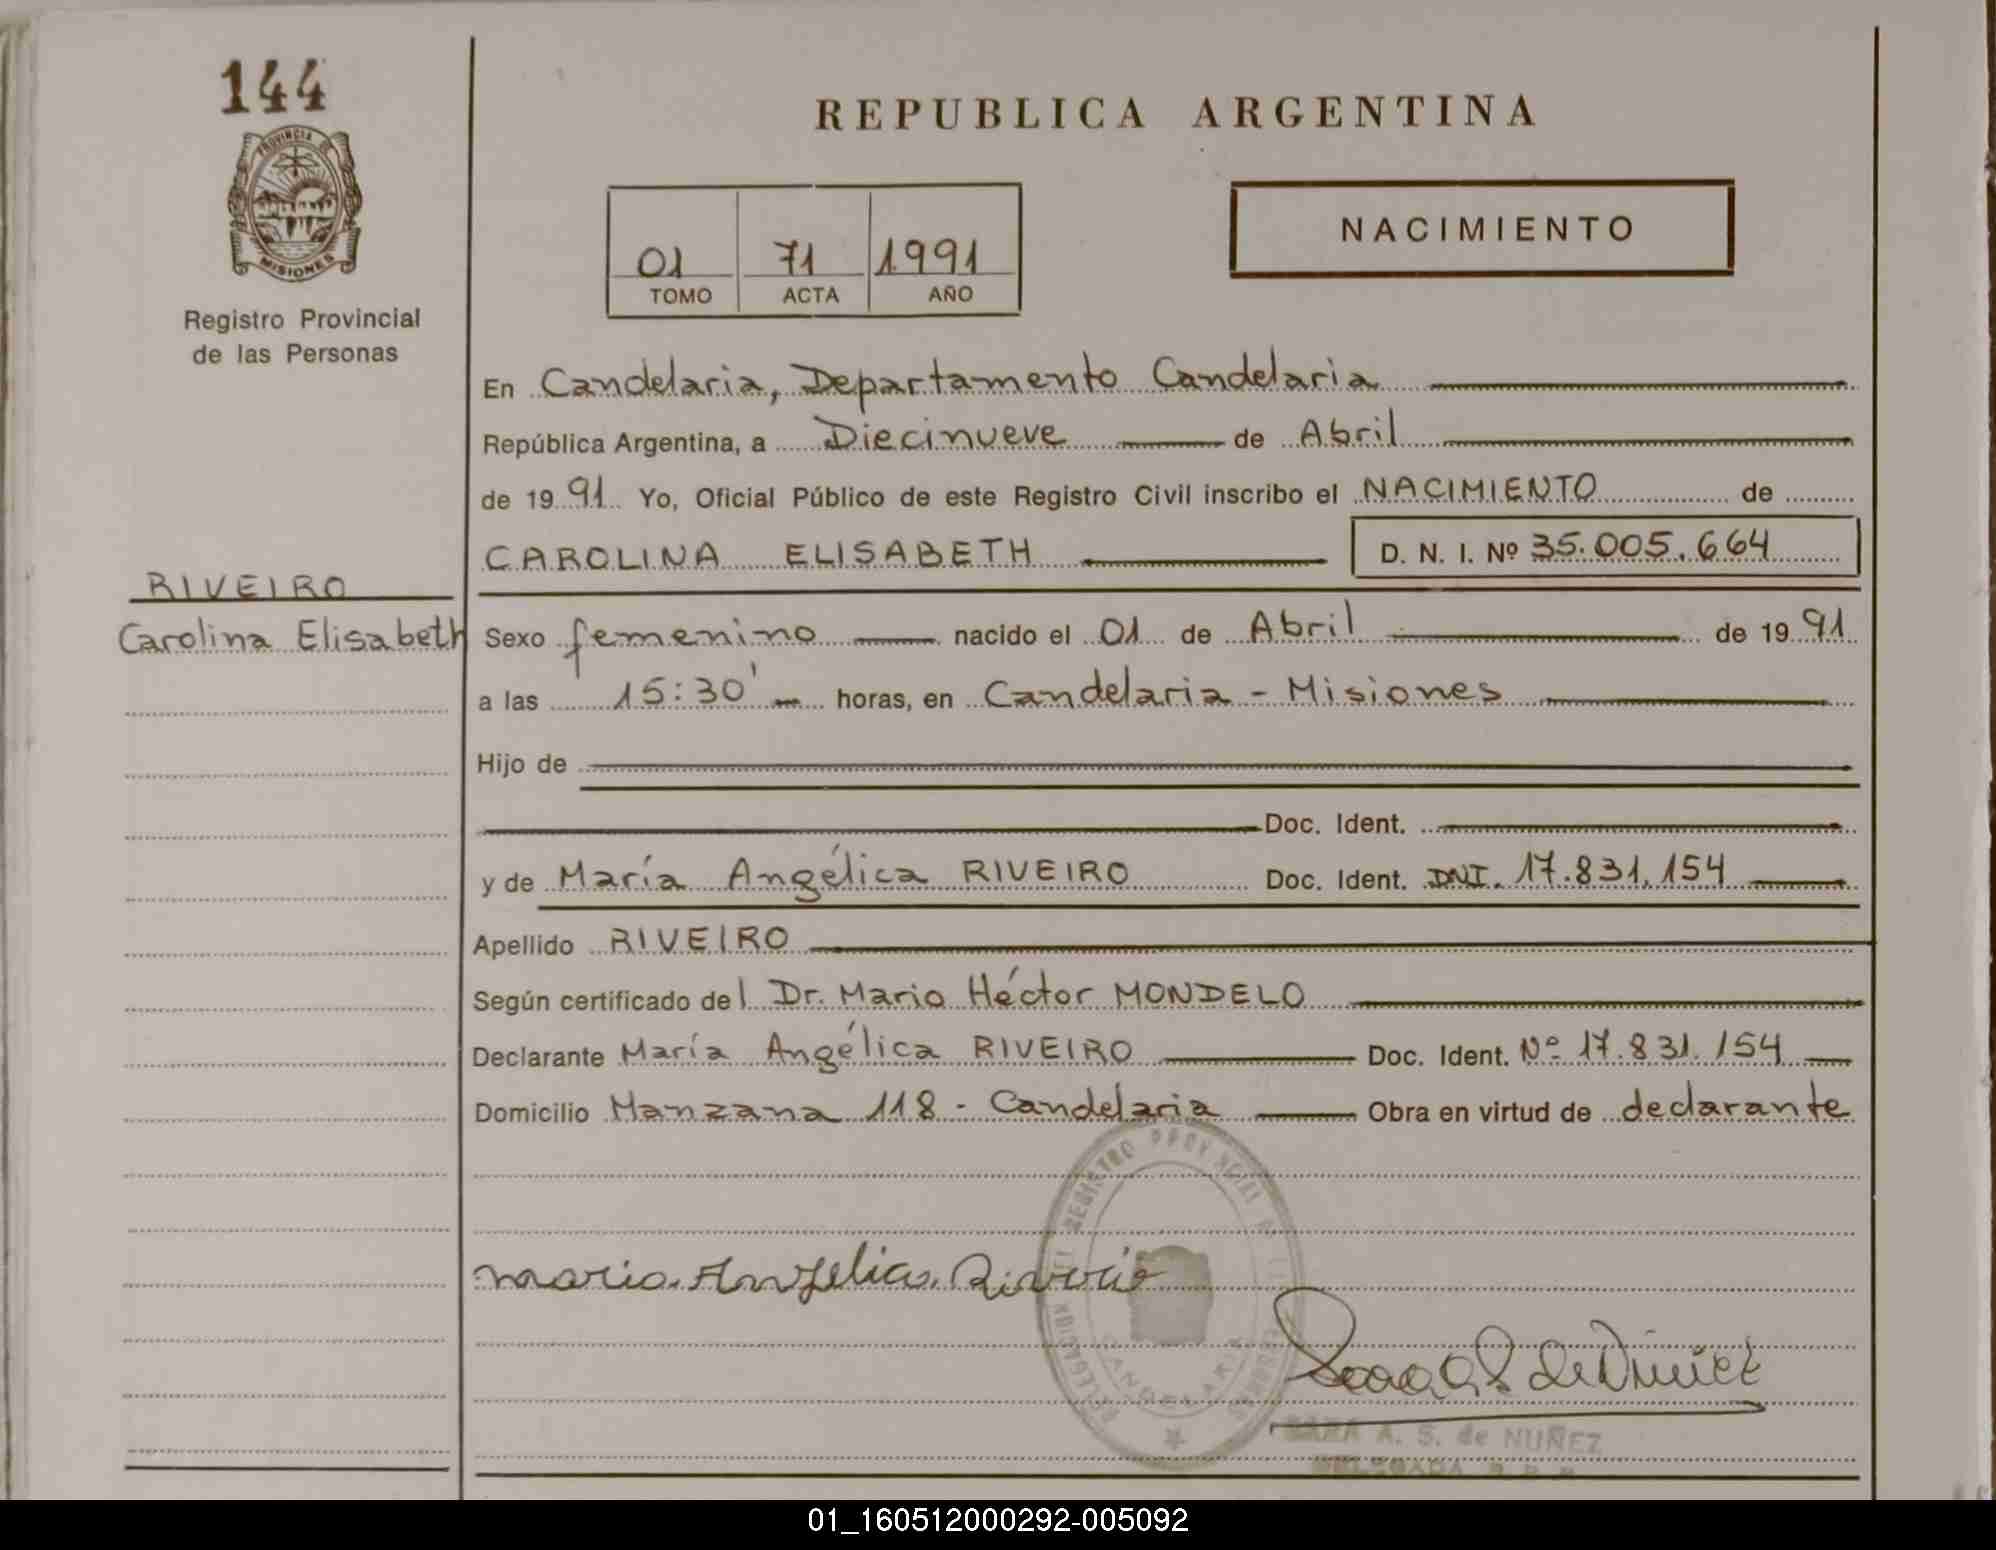 144
PROVINCIA DE
MISIONES
Registro Provincial
de las Personas
RIVEIRO
Carolina Elisabeth
REPUBLICA ARGENTINA
01 71 1991
TOMO ACTA AÑO
NACIMIENTO
En Candelaria, Departamento Candelaria
República Argentina, a Diecinueve de Abril
de 1991 Yo, Oficial Público de este Registro Civil inscribo el NACIMIENTO de
CAROLINA ELISABETH D. N. I. Nº 35.005.664
Sexo femenino nacido el 01 de Abril de 1991
a las 15:30' horas, en Candelaria - Misiones
Hijo de
Doc. Ident.
y de María Angélica RIVEIRO Doc. Ident. DNI. 17.831.154
Apellido RIVEIRO
Según certificado del Dr. Mario Héctor MONDELO
Declarante María Angélica RIVEIRO Doc. Ident. Nº 17.831.154
Domicilio Manzana 118 - Candelaria Obra en virtud de declarante
REGISTRO
DELEGACION
CANDELARIA
SARA A. S. de NUÑEZ
DELEGADA
01_160512000292-005092